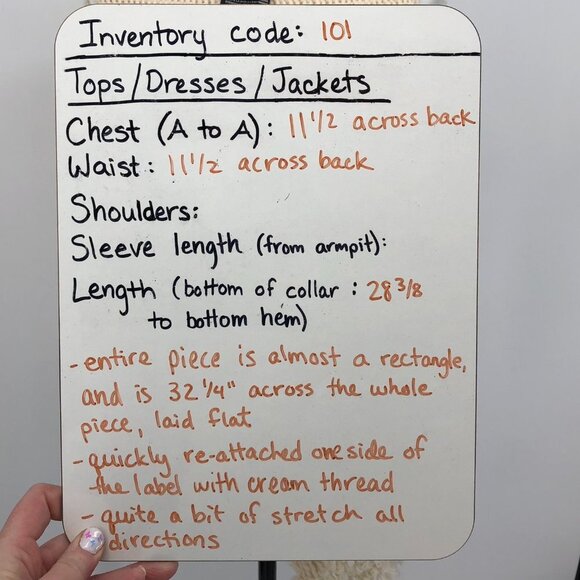 Inventory code: 101
Tops/Dresses/Jackets
Chest (A to A): 11 1/2 across back
Waist: 11 1/2 across back
Shoulders:
Sleeve length (from armpit):
Length (bottom of collar : 28 3/8
to bottom hem)
- entire piece is almost a rectangle,
and is 32 1/4" across the whole
piece, laid flat
- quickly re-attached one side of
the label with cream thread
- quite a bit of stretch all
directions